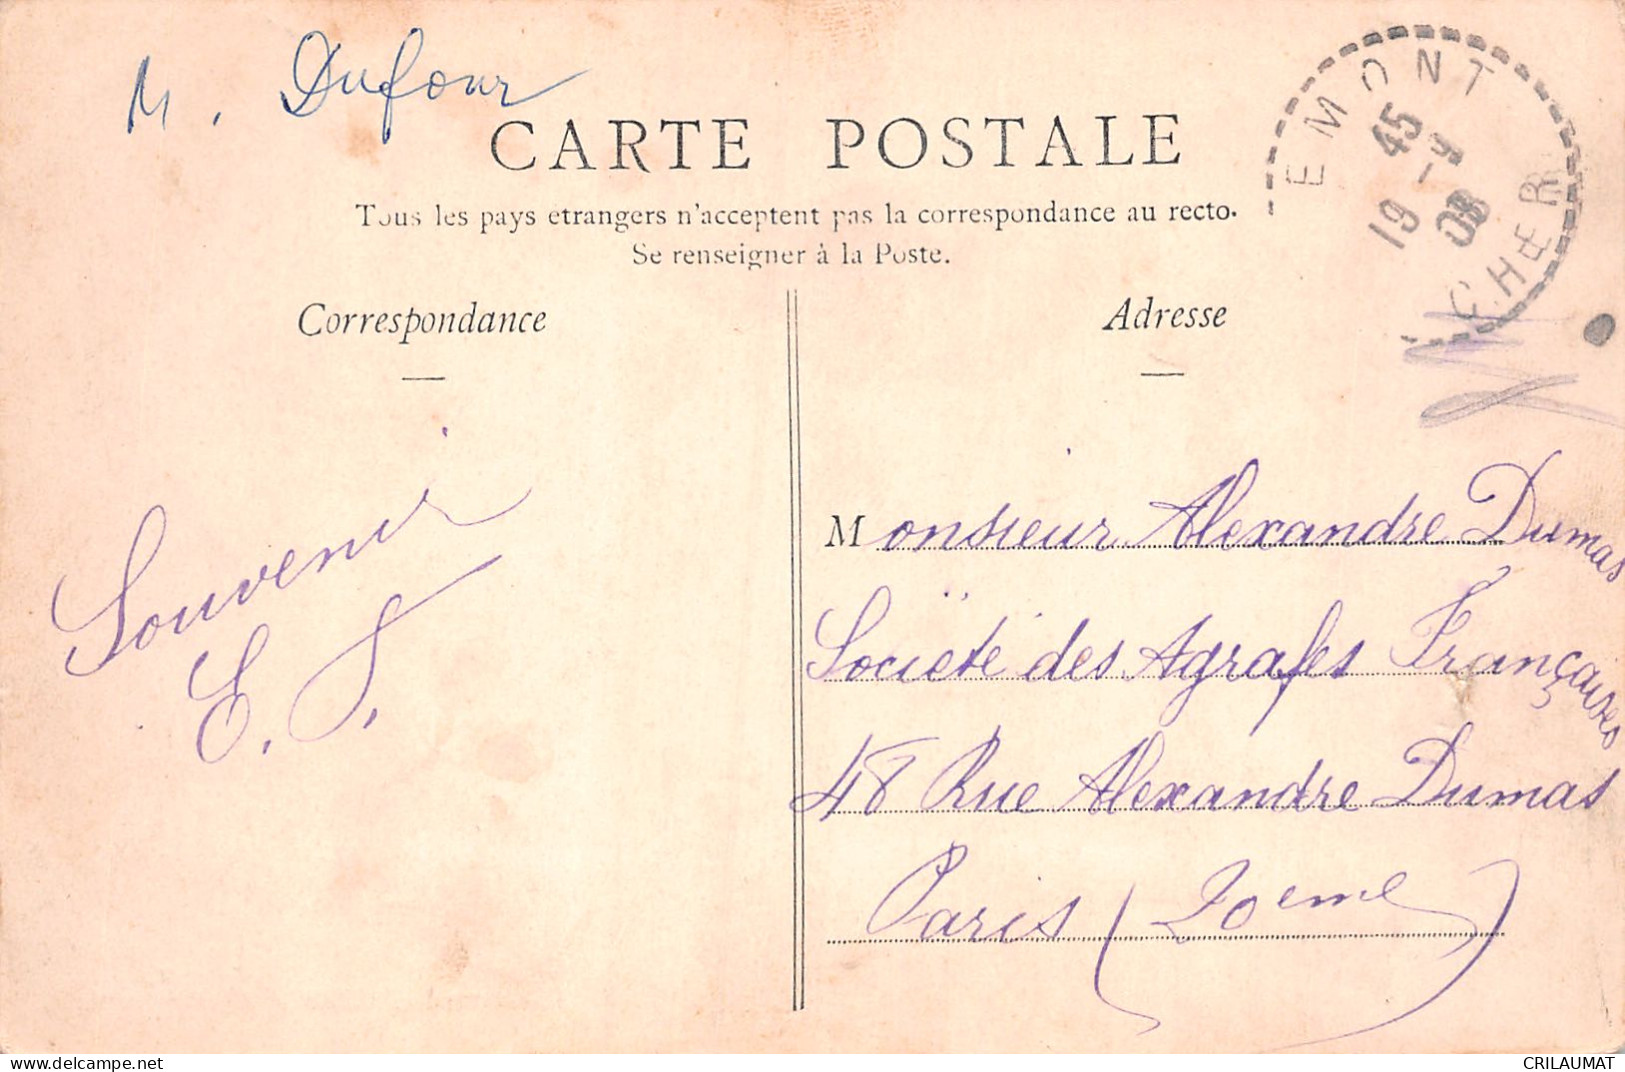 M. Dufour
CARTE POSTALE
Tous les pays etrangers n'acceptent pas la correspondance au recto.
Se renseigner à la Poste.
EMONT
45
19 -9
08
CHER
Correspondance
Adresse
Souvenir
E. S.
Monsieur Alexandre Dumas
Société des Agrafes Françaises
48 Rue Alexandre Dumas
Paris (20eme)
http://www.delcampe.net
CRILAUMAT